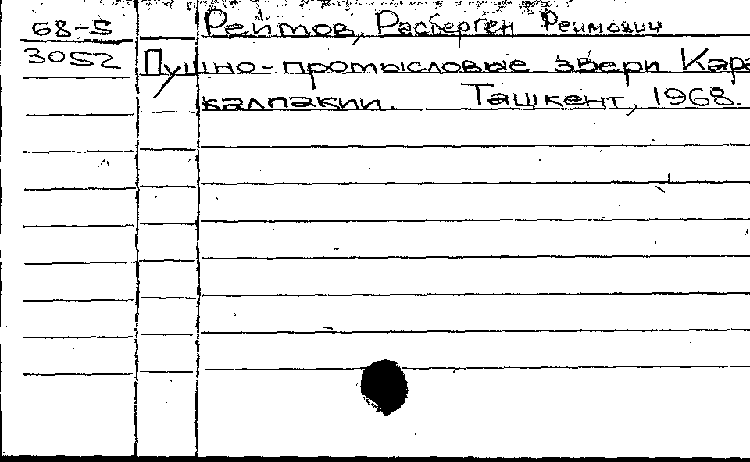 68-5 Реитов, Расберген Реимович
3052 Пушно-промысловые звери Кара
калпакии. Ташкент, 1968.